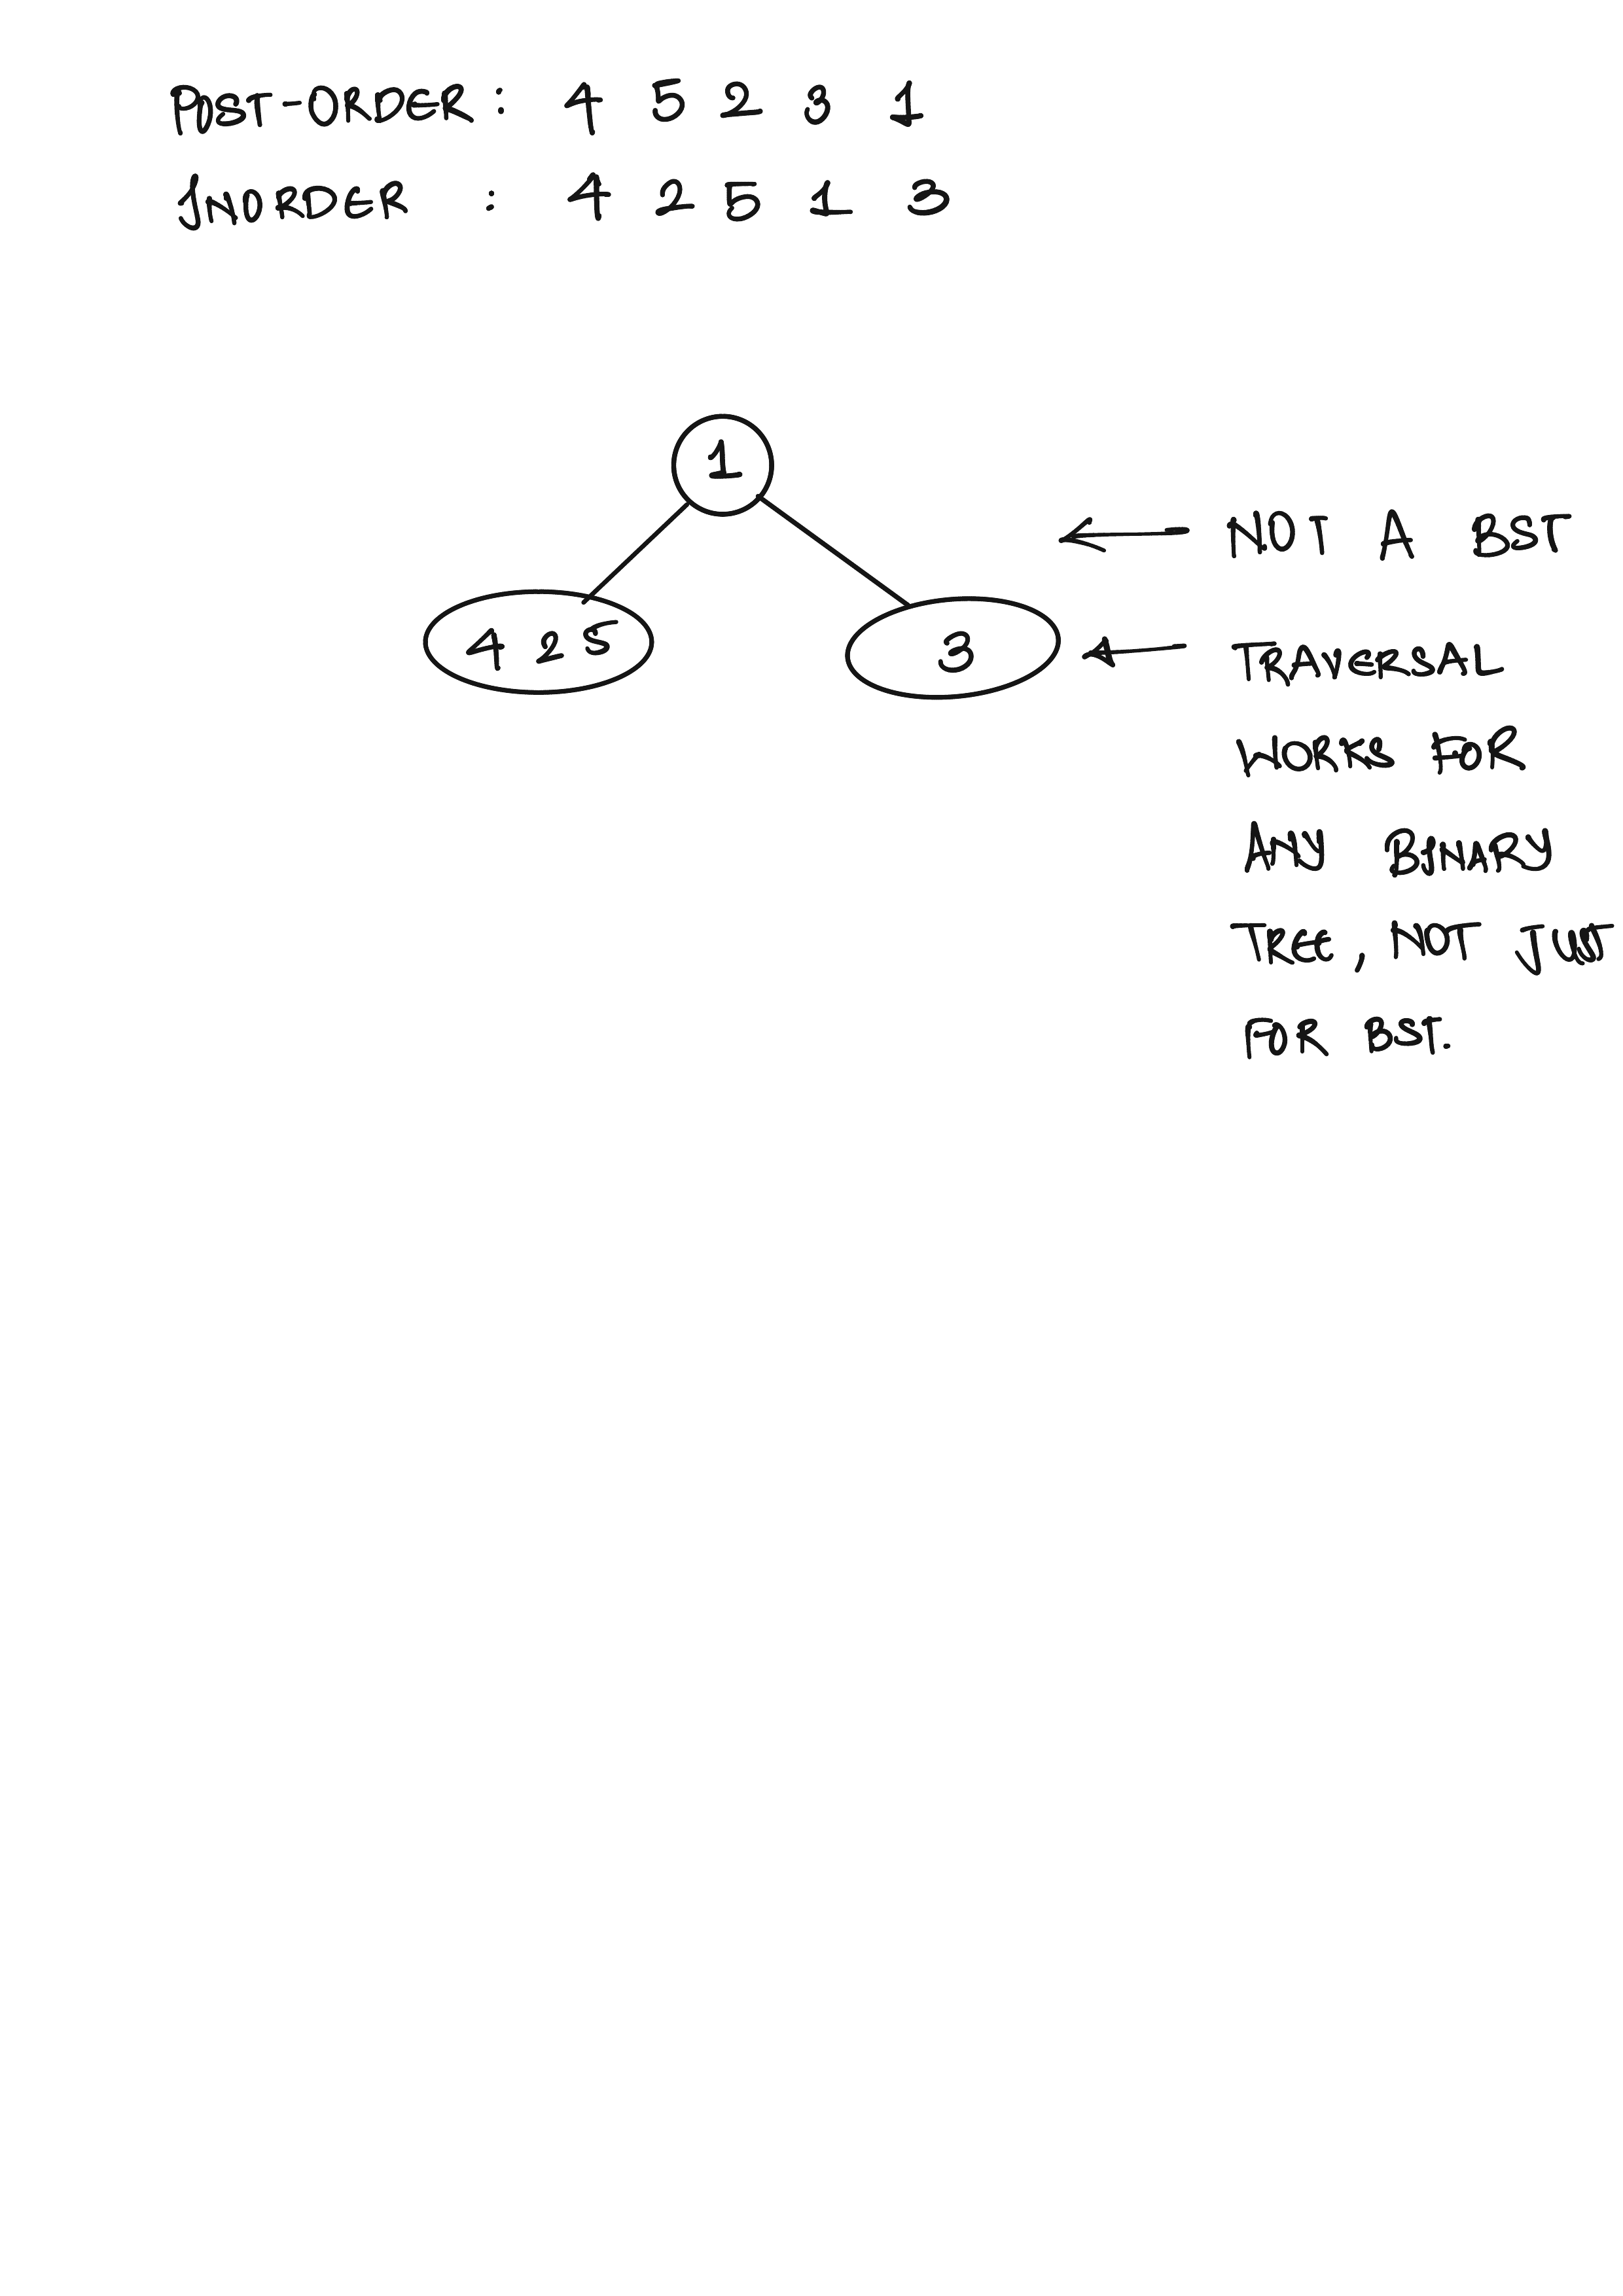 POST-ORDER : 4 5 2 3 1
INORDER : 4 2 5 1 3
1
NOT A BST
4 2 5
3
TRAVERSAL
WORKS FOR
ANY BINARY
TREE, NOT JUST
FOR BST.